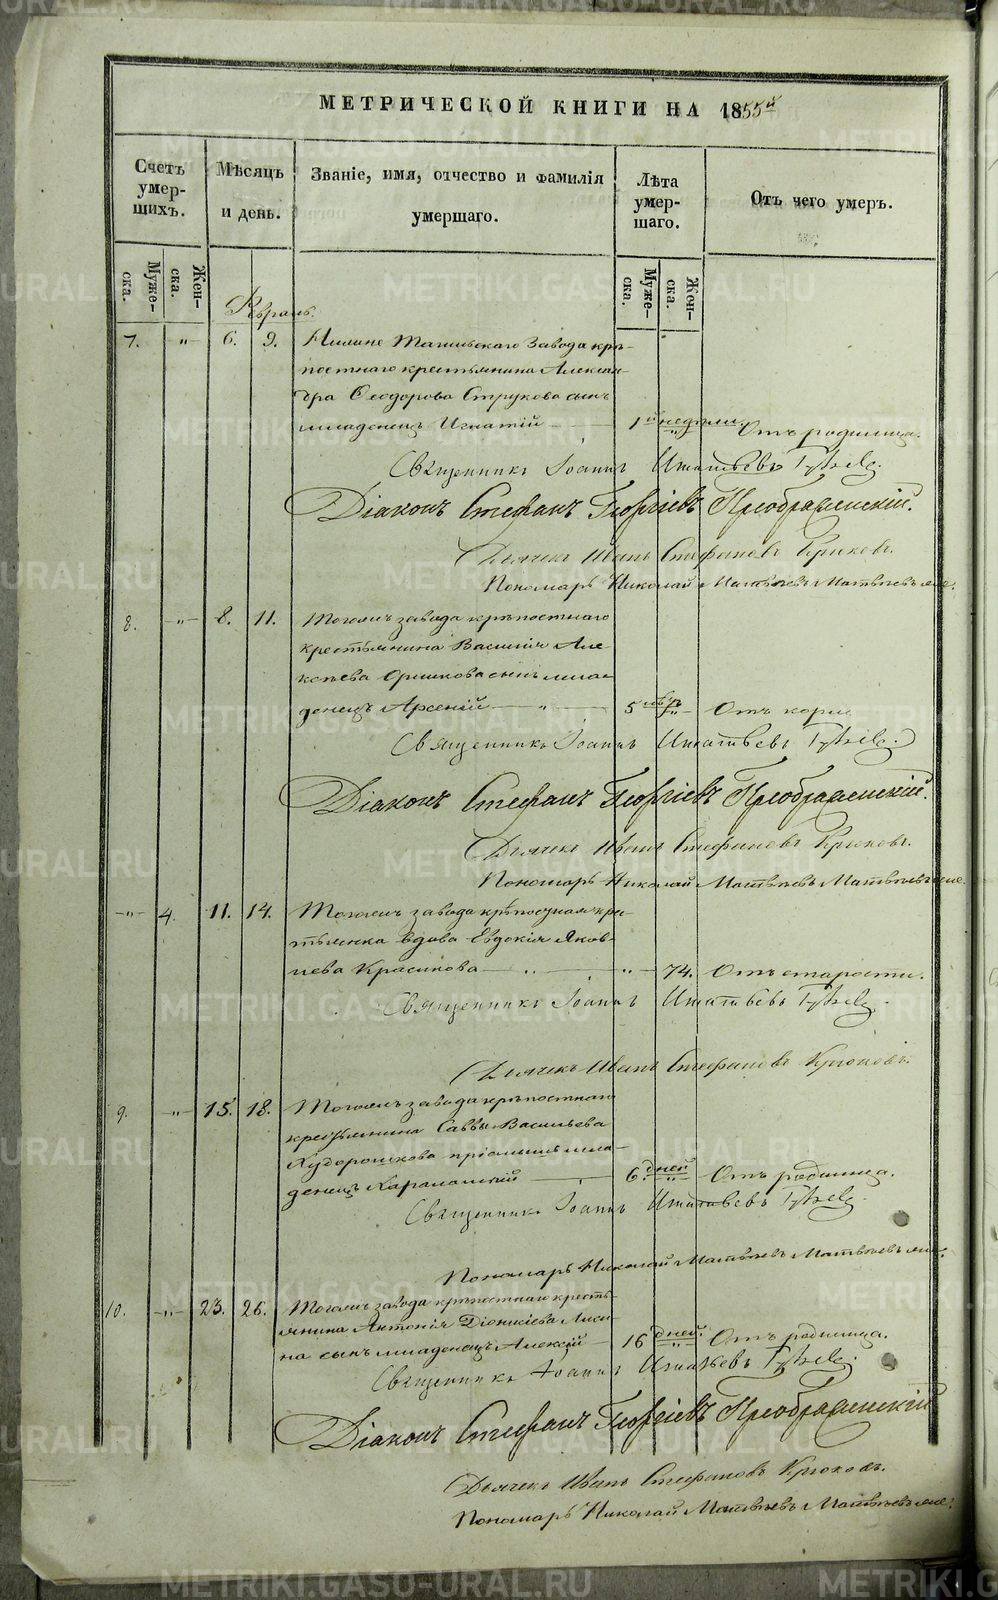 МЕТРИЧЕСКОЙ КНИГИ НА 1855й
Счетъ умер- шихъ.
Мѣсяцъ и день.
Званіе, имя, отчество и фамилія умершаго.
Лѣта умер- шаго.
Отъ чего умеръ.
Муже- ска.
Жен- ска.
Муже- ска.
Жен- ска.
Февраль.
7. „ 6. 9. Нижне Тагильскаго завода крѣ-
постнаго крестьянина Алексан-
дра Ѳеодорова Струкова сынъ
младенецъ Игнатій 1й недѣли. „ Отъ родимца.
Священникъ Іоаннъ Игнатьевъ
Діаконъ Стефанъ Георгіевъ Преображенскій.
Дьячекъ Иванъ Стефановъ Крюковъ.
Пономарь Николай Матвѣевъ
8. „ 8. 11. Тогожъ завода крѣпостнаго
крестьянина Василія Але-
ксѣева сынъ мла-
денецъ Арсеній „ 5 „ Отъ кори
Священникъ Іоаннъ Игнатьевъ
Діаконъ Стефанъ Георгіевъ Преображенскій.
Дьячекъ Иванъ Стефановъ Крюковъ.
Пономарь Николай Матвѣевъ
„ 4. 11. 14. Тогожъ завода крѣпостная крес-
тьянка вдова Евдокія Яков-
лева Красикова „ „ 74. Отъ старости.
Священникъ Іоаннъ Игнатьевъ
Дьячекъ Иванъ Стефановъ Крюковъ.
9. „ 15. 18. Тогожъ завода крѣпостнаго
крестьянина Саввы Васильева
Худорошкова пріемышъ мла-
денецъ Харлампій 6. дней „ Отъ родимца.
Священникъ Іоаннъ Игнатьевъ
Пономарь Николай Матвѣевъ
10. „ 23. 26. Тогожъ завода крѣпостнаго кресть-
янина Антонія Діонисіева
на сынъ младенецъ Алексій 16 дней. „ Отъ родимца.
Священникъ Іоаннъ Игнатьевъ
Діаконъ Стефанъ Георгіевъ Преображенскій
Дьячекъ Иванъ Стефановъ Крюковъ.
Пономарь Николай Матвѣевъ
METRIKI.GASO-URAL.RU